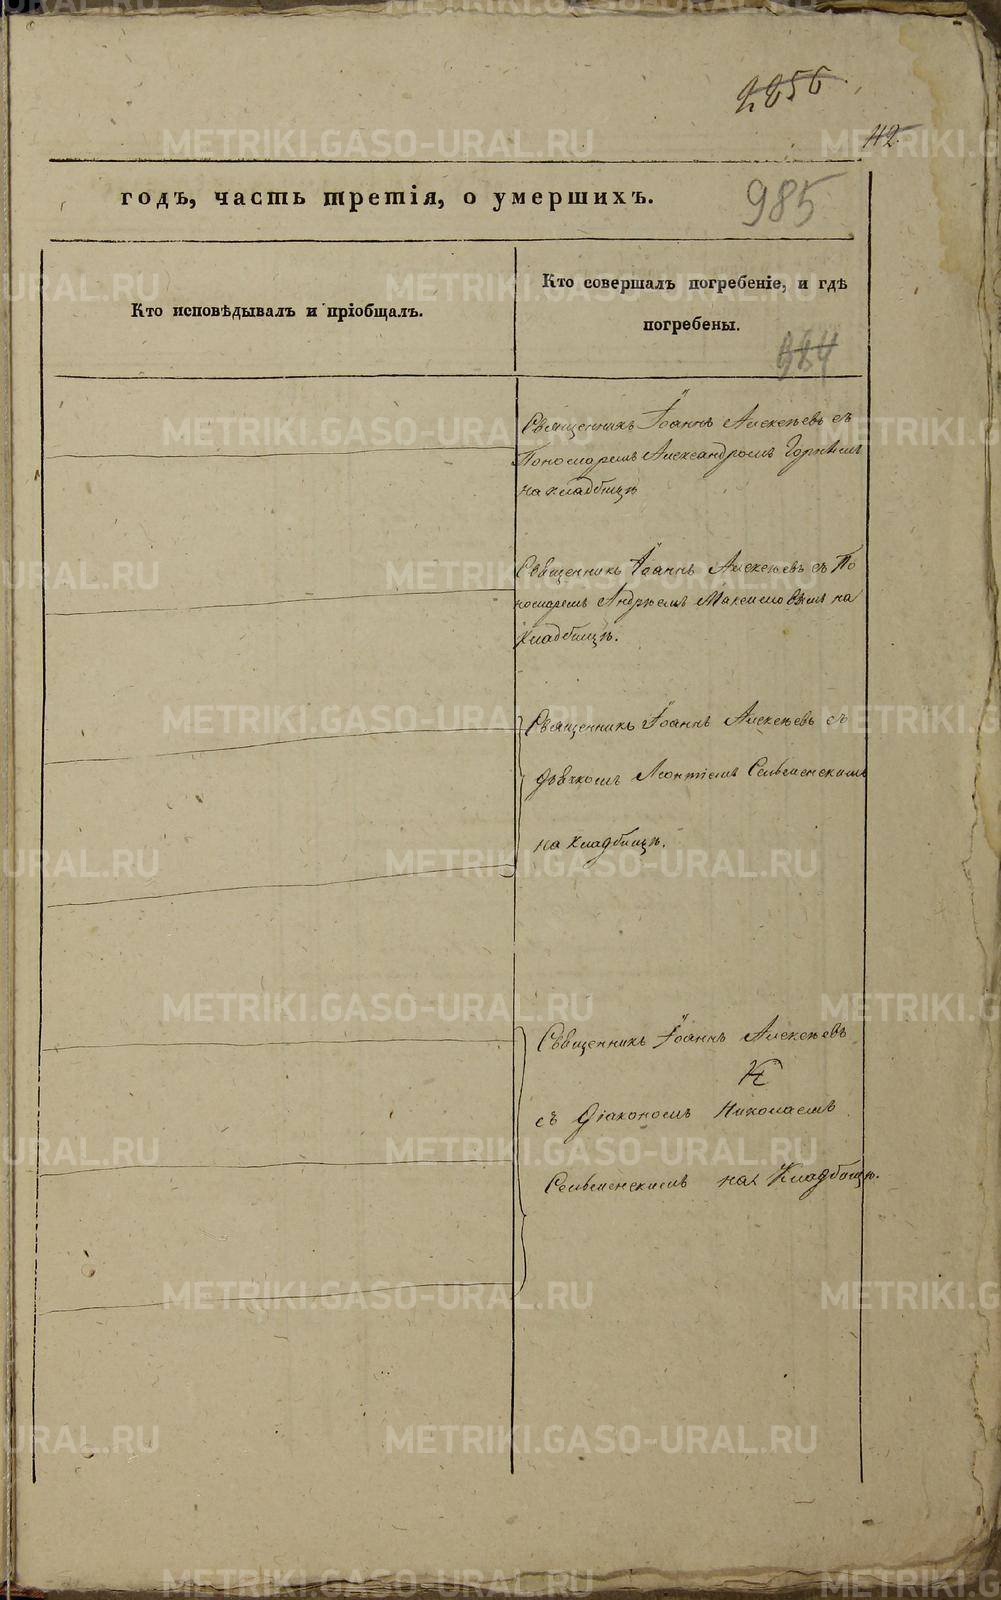 2256
42
годъ, часть третія, о умершихъ.
985
Кто исповѣдывалъ и пріобщалъ.
Кто совершалъ погребеніе, и гдѣ
погребены.
984
Священникъ Іоаннъ Алексѣевъ съ
Пономаремъ Александромъ Горнымъ
на кладбищѣ
Священникъ Іоаннъ Алексѣевъ съ По
номаремъ Андрѣемъ Максимовымъ на
кладбищѣ.
Священникъ Іоаннъ Алексѣевъ съ
дьячкомъ Леонтіемъ Сельменскимъ
на кладбищѣ.
Священникъ Іоаннъ Алексѣевъ
съ Діакономъ Николаемъ
Сельменскимъ на Кладбищѣ.
METRIKI.GASO-URAL.RU